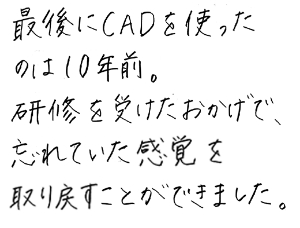 最後にCADを使った
のは10年前。
研修を受けたおかげで、
忘れていた感覚を
取り戻すことができました。